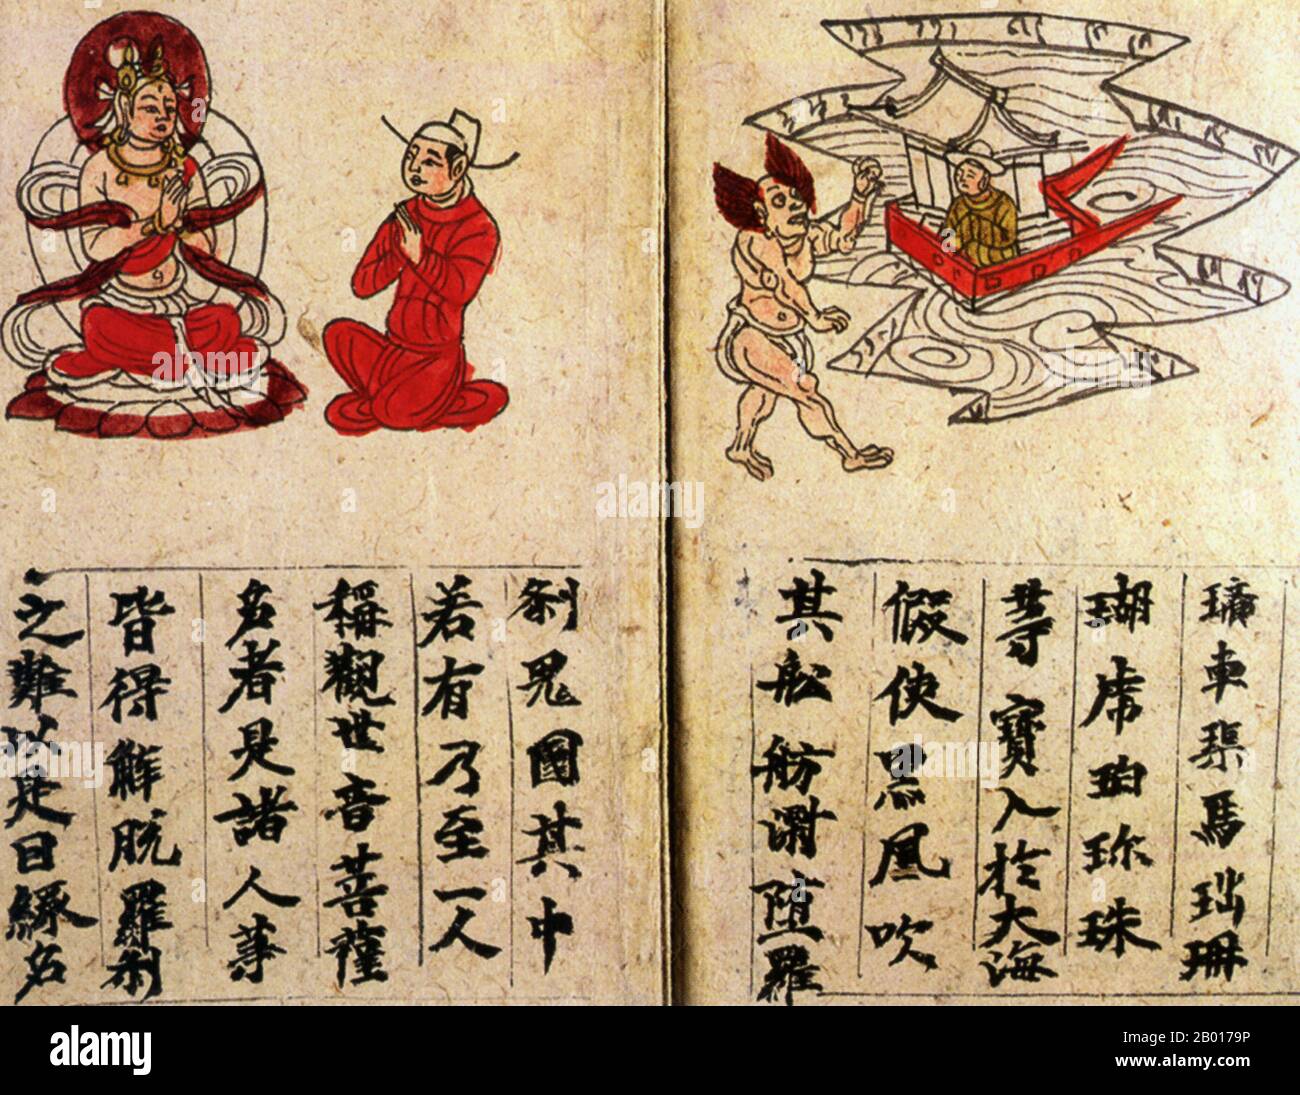 璃車渠馬瑙珊
瑚虎珀珎珠
等寶入於大海
假使黑風吹
其舩舫漂堕羅
刹鬼國其中
若有乃至一人
稱觀世音菩薩
名者是諸人等
皆得解脱羅刹
之難以是因緣名
alamy
Image ID: 2B0179P
www.alamy.com